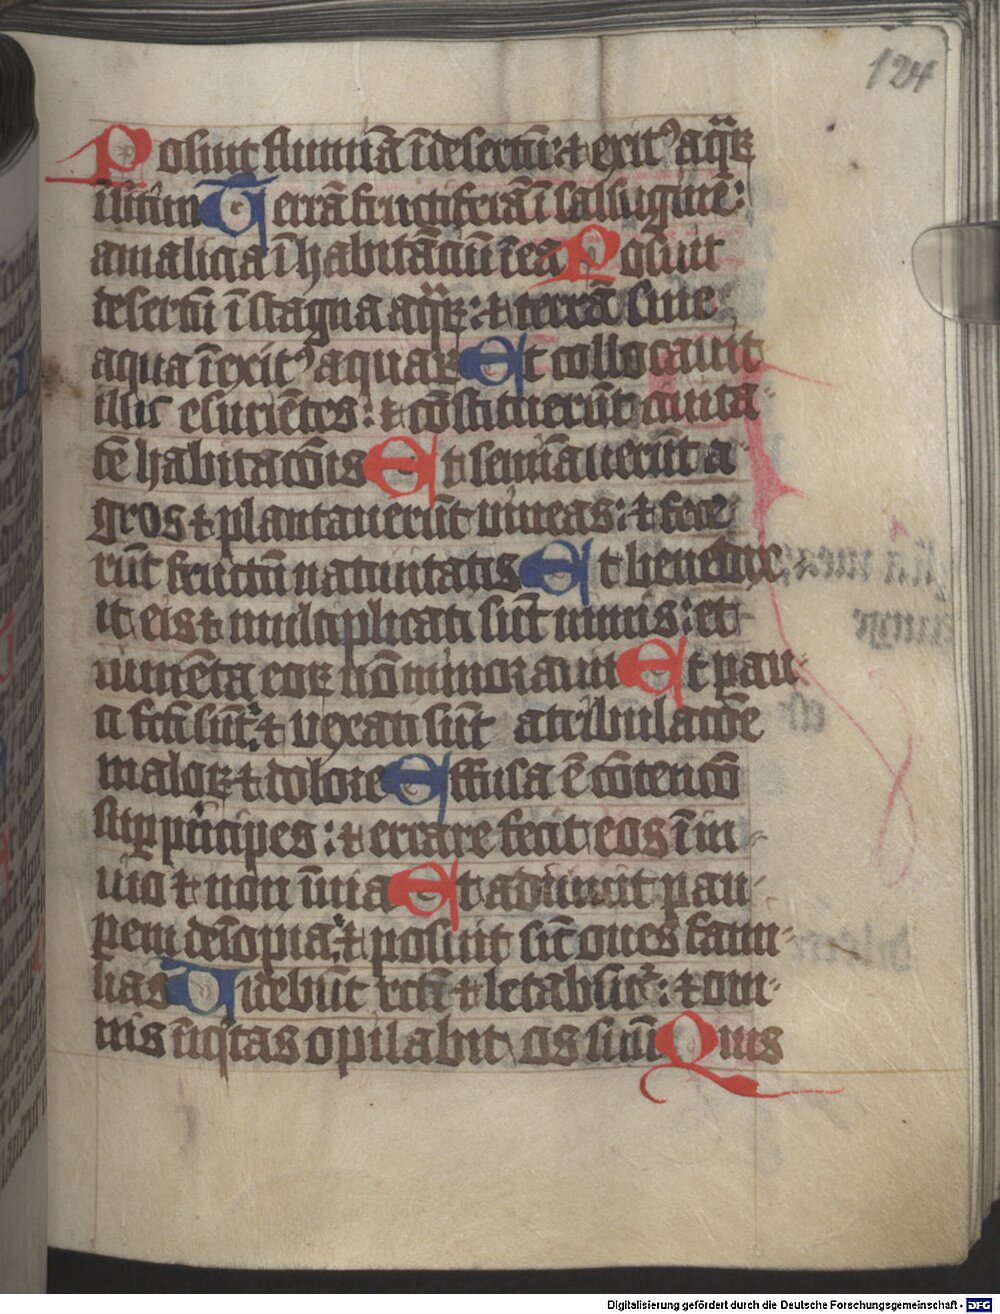 124
Posuit flumīa ī desertū: ⁊ exit⁹ aqꝝ
ī sitim Terrā fructiferā ī salsuginē:
a malicia īhabitāciū ī ea Posuit
desertū ī stagna aqꝝ: ⁊ terrā sine
aqua ī exit⁹ aquaꝝ Et collocauit
illic esuriētes: ⁊ cōstituerūt ciuita-
tē habitacōis Et semīauerūt a-
gros ⁊ plantauerūt uineas: ⁊ fece-
rūt fructū natiuitatis Et benedix-
it eis ⁊ multiplicati sūt nimis: et
iumēta eoꝝ nō minorauit Et pau-
ci fc̄i sūt: ⁊ vexati sūt a tribulacōe
maloꝝ ⁊ dolore Effusa ē cōtencō
suꝑ prīcipes: ⁊ errare fecit eos ī in-
uio ⁊ non ī uia Et adiuuit pau-
ꝑem de īopia: ⁊ posuit sic̄ oues fami-
lias Uidebūt rc̄ti ⁊ letabūt᷑: ⁊ om-
nis īiq̄tas opilabit os suū Quis
Digitalisierung gefördert durch die Deutsche Forschungsgemeinschaft - DFG